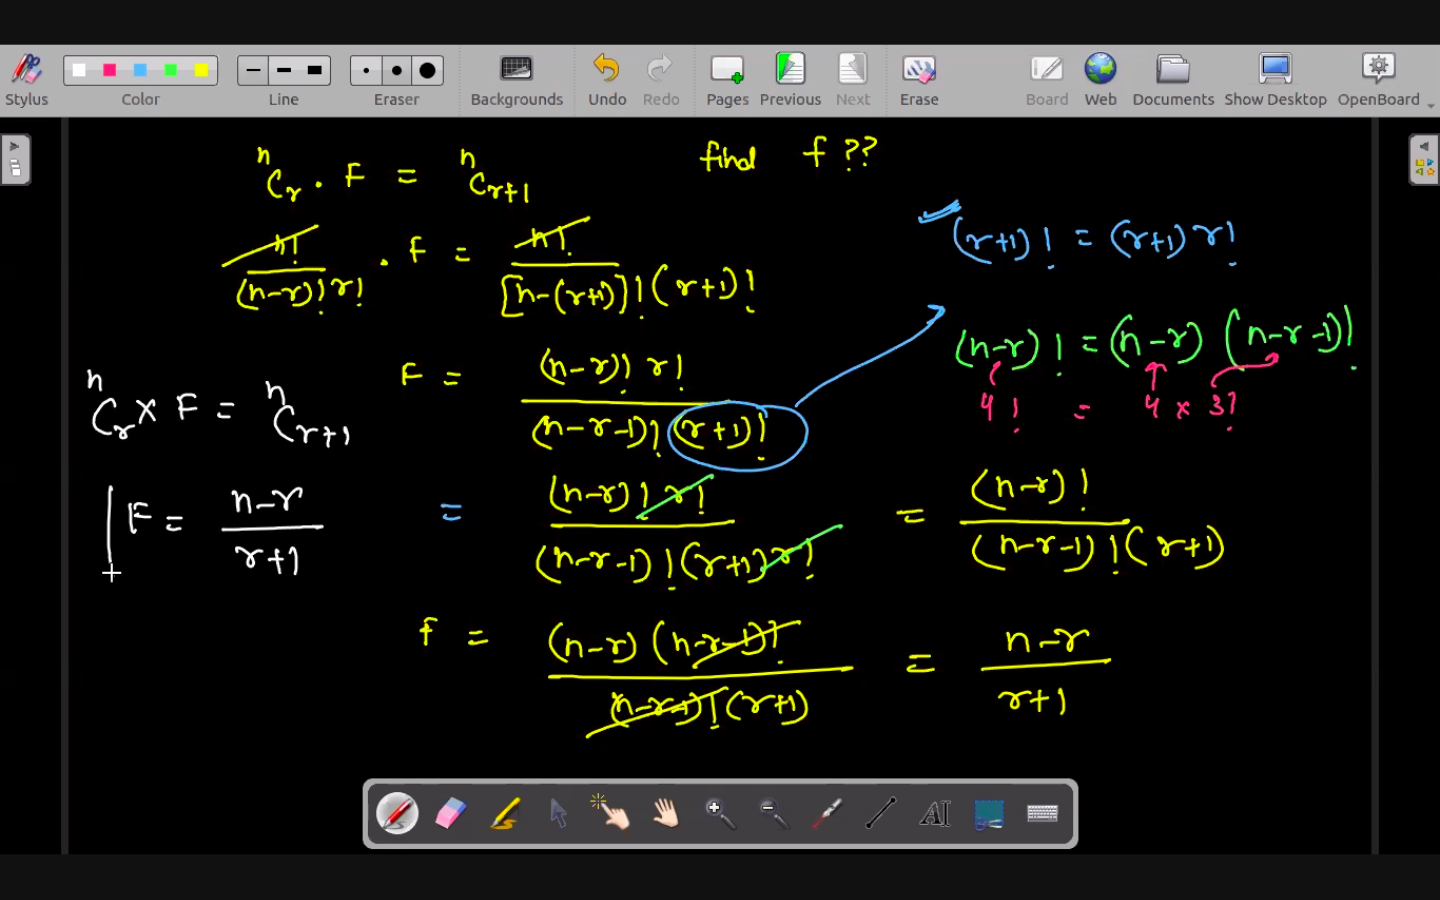 Stylus Color Line Eraser Backgrounds Undo Redo Pages Previous Next Erase Board Web Documents Show Desktop OpenBoard
ⁿCᵣ · F = ⁿCᵣ₊₁ find f ??
n! / (n-r)! r! · F = n! / [n-(r+1)]! (r+1)!
(r+1)! = (r+1) r!
F = (n-r)! r! / (n-r-1)! (r+1)!
(n-r)! = (n-r) (n-r-1)!
4! = 4 × 3!
ⁿCᵣ × F = ⁿCᵣ₊₁
F = n-r / r+1
= (n-r)! r! / (n-r-1)! (r+1) r! = (n-r)! / (n-r-1)! (r+1)
f = (n-r) (n-r-1)! / (n-r-1)! (r+1) = n-r / r+1
AI